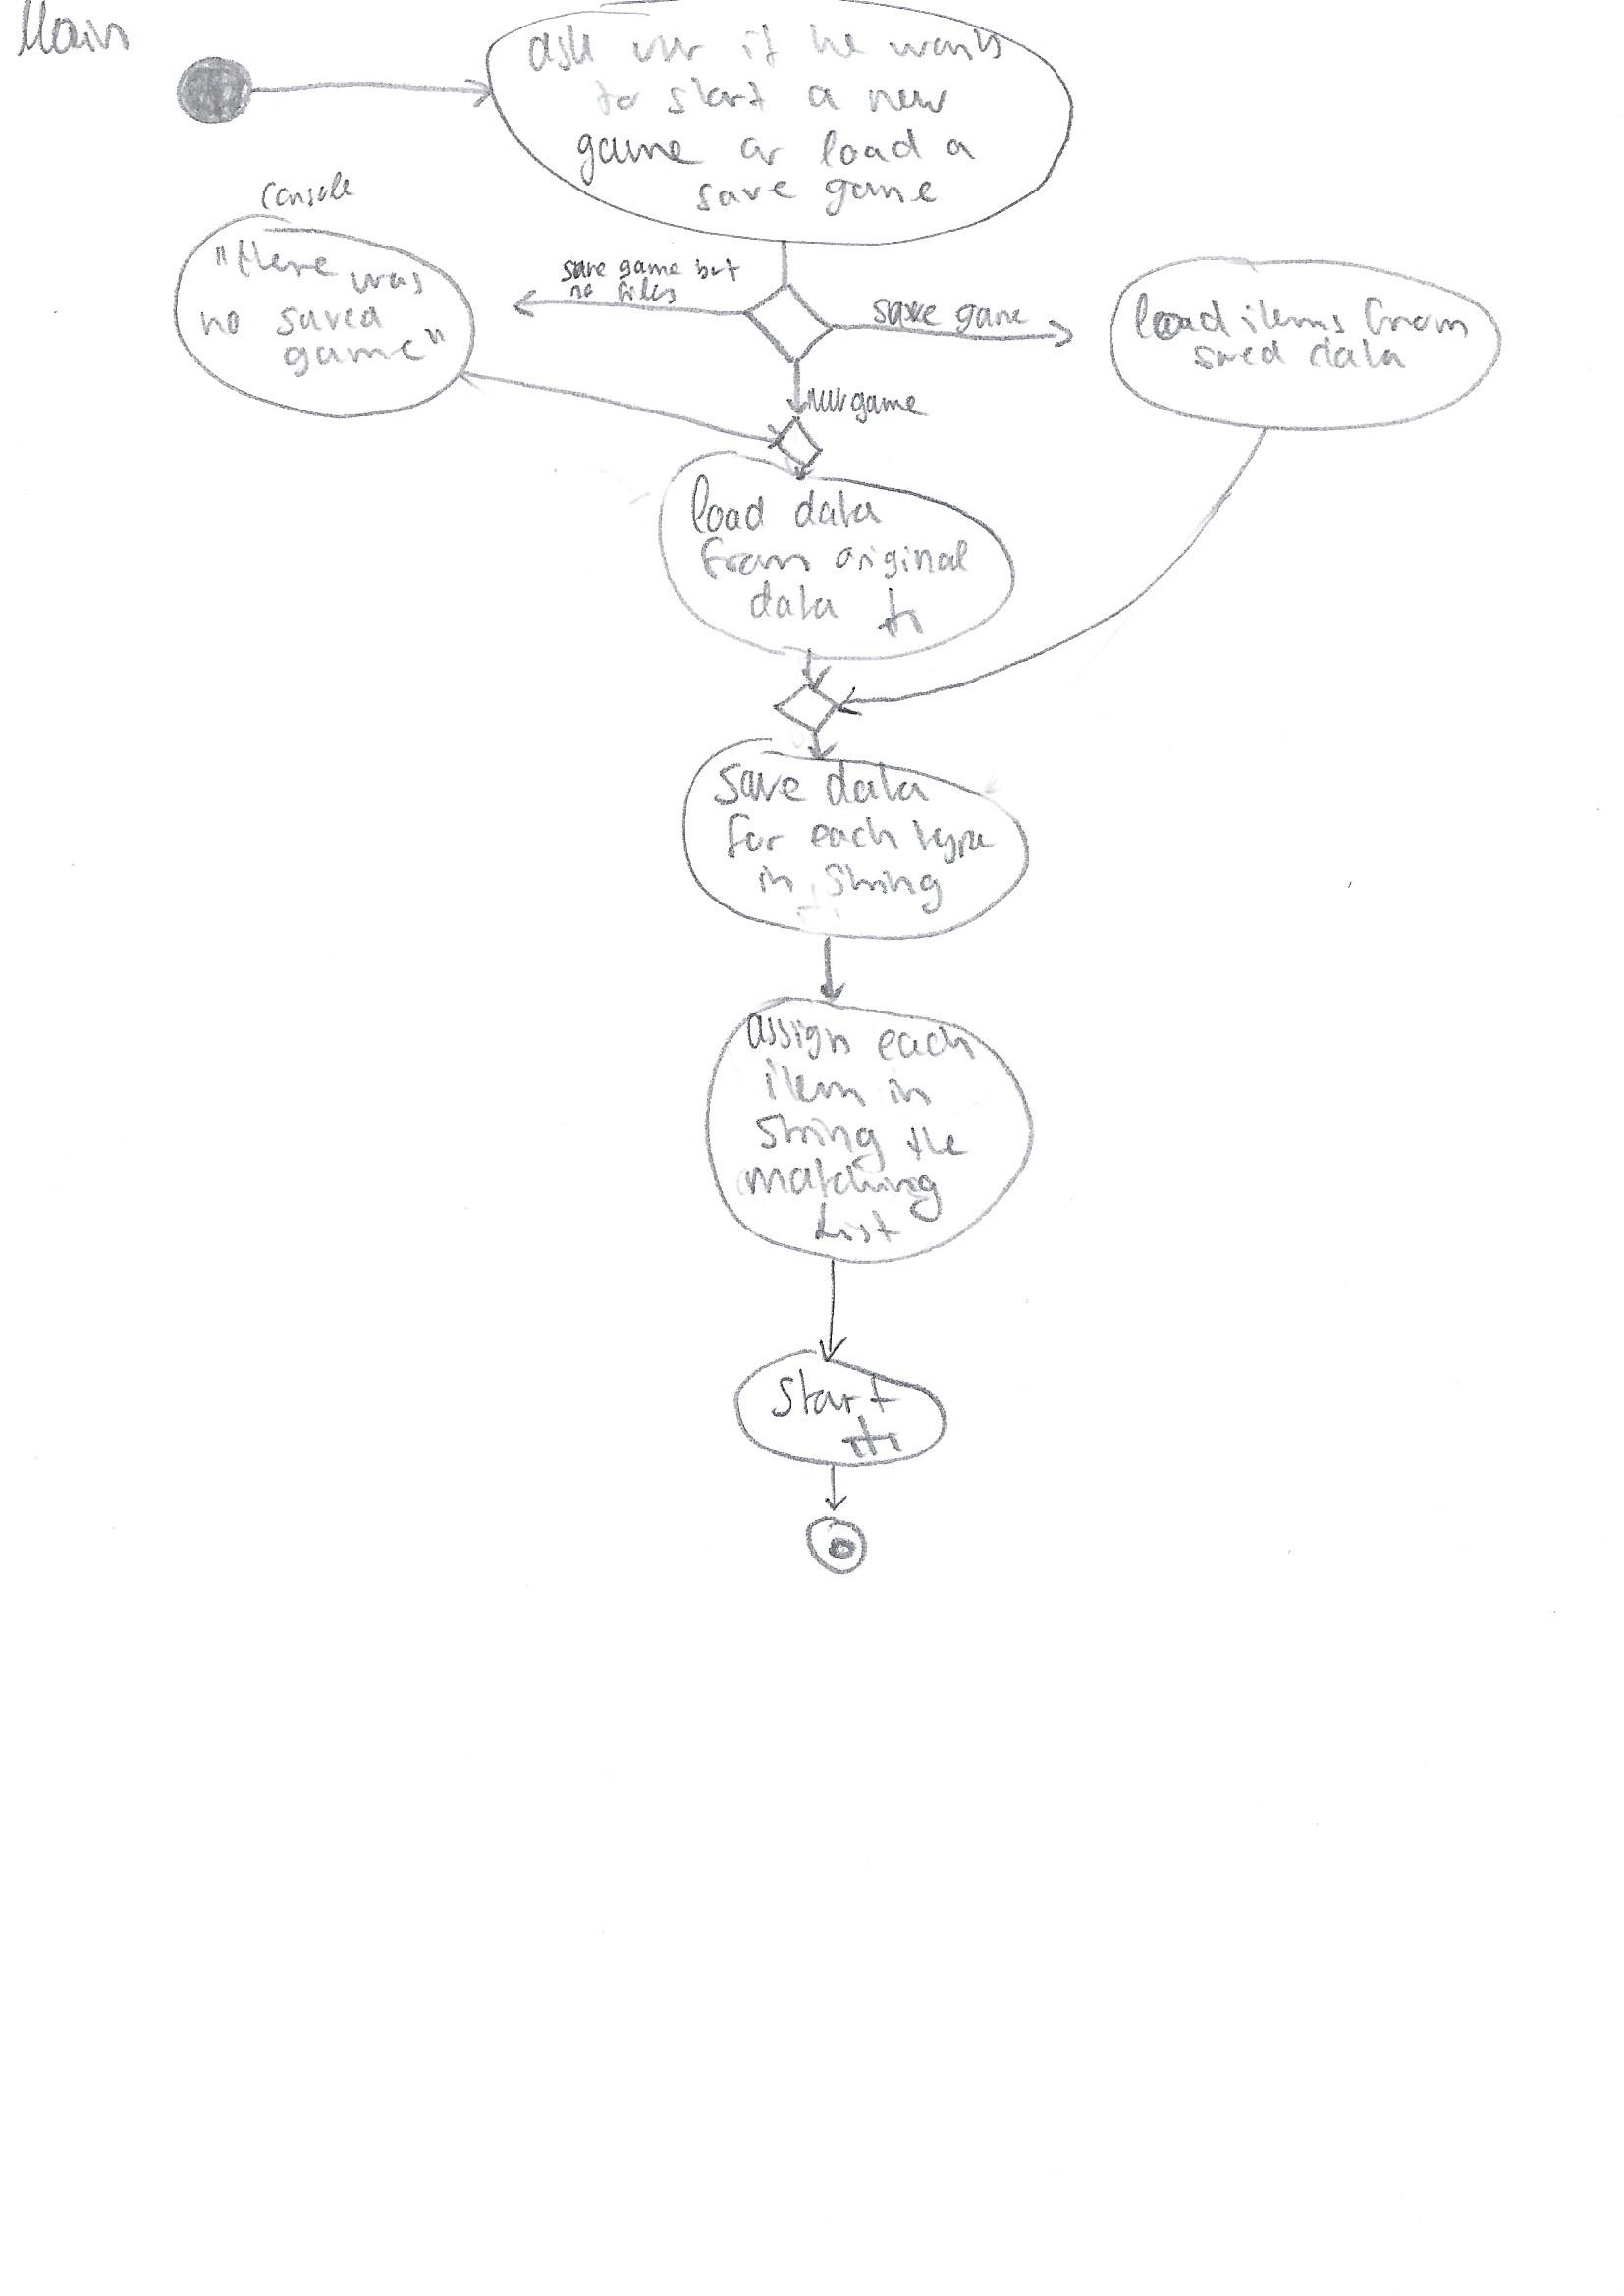 Main
ask user if he wants
to start a new
game or load a
save game
Console
"there was
no saved
game"
save game but
no files
save game
load items from
saved data
new game
load data
from original
data
save data
for each type
in String
assign each
item in
String the
matching
List
Start